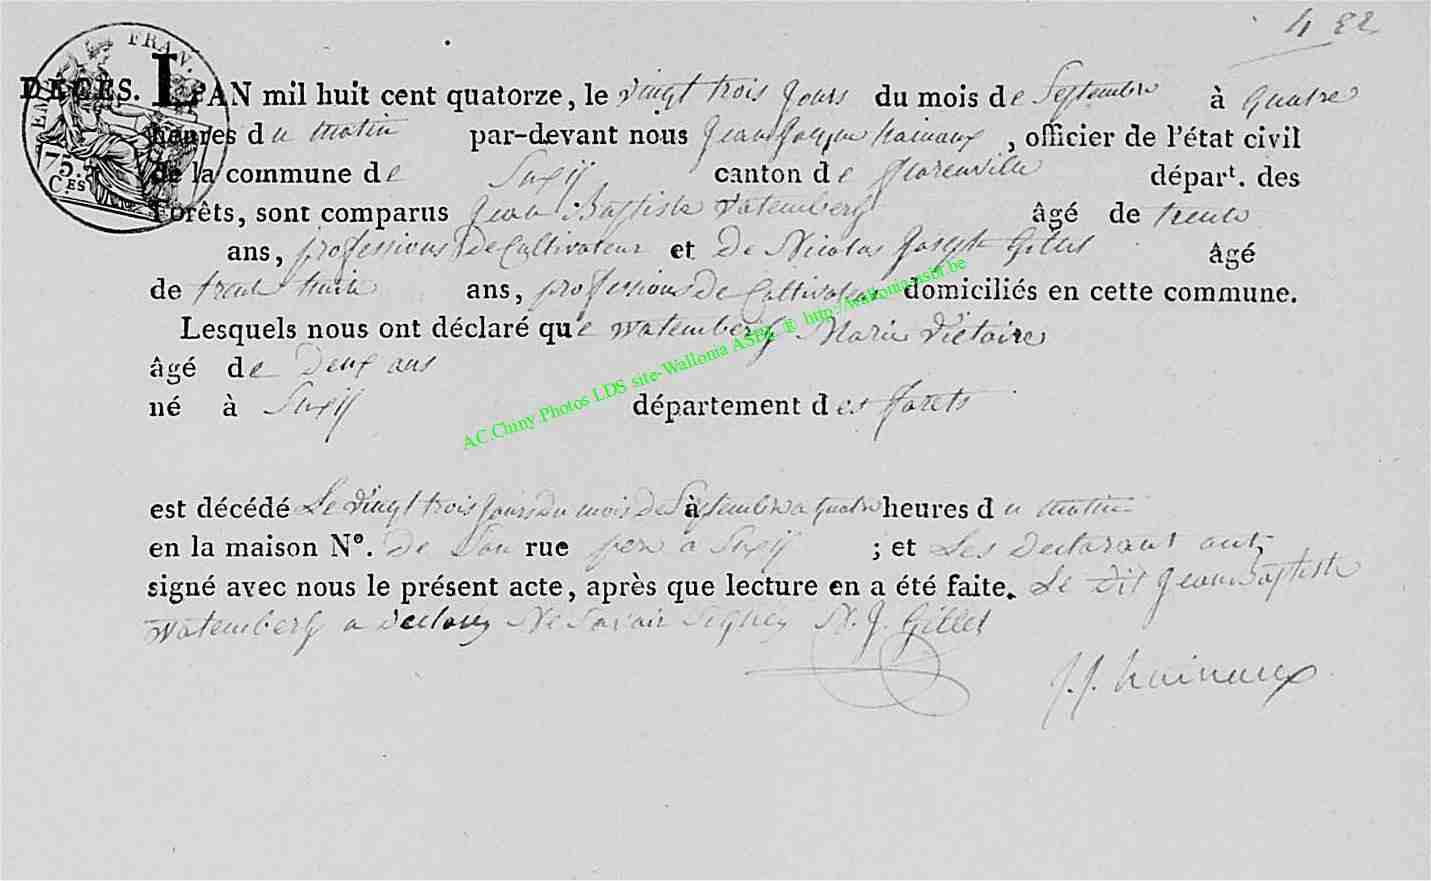 4 82
EMP. FRAN.
75. CES
DÉCÈS. L'AN mil huit cent quatorze, le vingt trois jours du mois de Septembre à quatre
heures du matin par-devant nous Jean Jacque hainaux, officier de l'état civil
de la commune de Suxij canton de florenville départ. des
Forêts, sont comparus Jean Baptiste Watemberg âgé de trente
ans, professions De Cultivateur et De Nicolas Joseph Gillet âgé
de trente huit ans, professions De Cultivateur domiciliés en cette commune.
Lesquels nous ont déclaré que Watemberg Marie Victoire
âgé de Deux ans
né à Suxij département des forets
est décédé Le vingt trois jours du mois De Septembre à quatre heures du matin
en la maison N°. De Son rue à Suxij ; et Les Declarant ont
signé avec nous le présent acte, après que lecture en a été faite. Le dit Jean Baptiste
Watemberg a declarez Ne Savoir Signez N. J. Gillet
J. J. hainaux
AC.Chiny.Photos LDS site-Wallonia ASBL ® http://wallonia-asbl.be